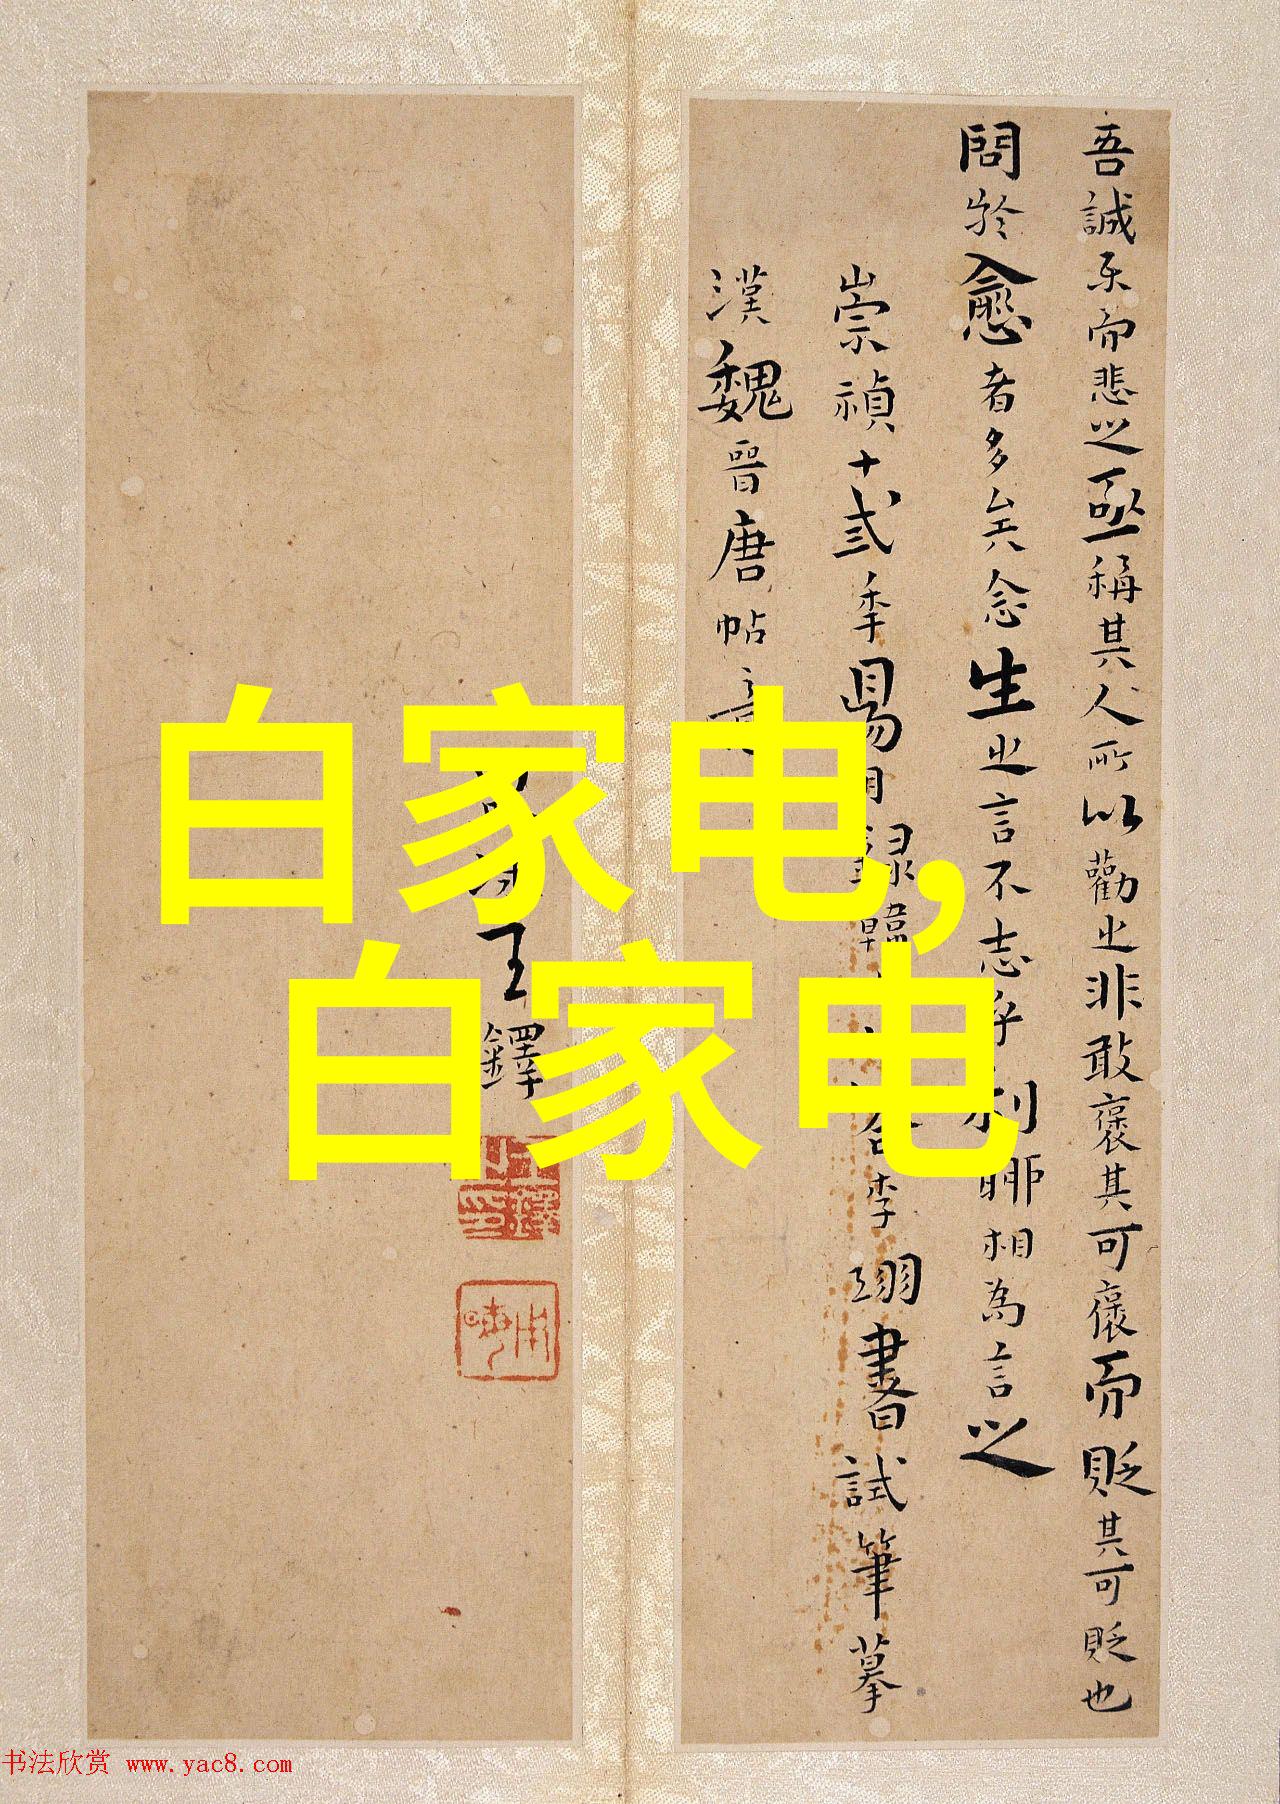 吾誠乐而悲之亟稱其人所以勸之非敢褒其可褒而貶其可貶也
問於愈者多矣念生之言不志乎利聊相為言之
崇禎十弍季昜月錄韓答李翊書試筆摹
漢魏晉唐帖
王鐸
王鐸之印
白家电,
白家电
书法欣赏 www.yac8.com